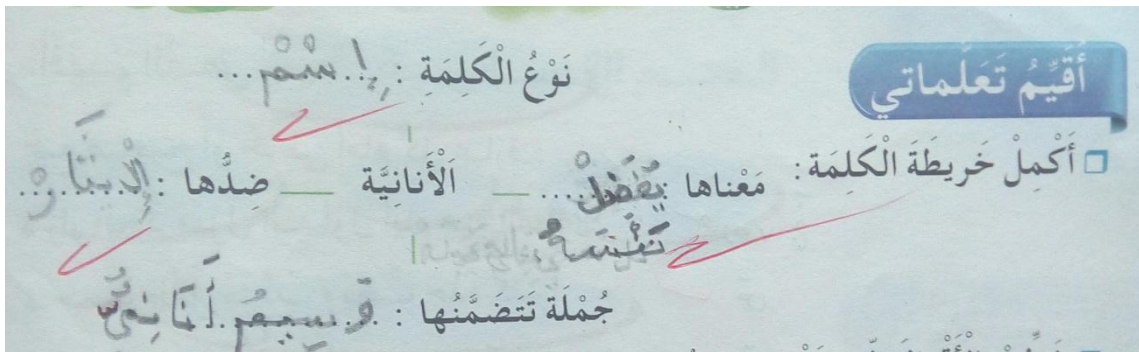 أُقَيِّمُ تَعَلُّماتي
نَوْعُ الْكَلِمَةِ : إِسْمْ
أَكْمِلْ خَريطَةَ الْكَلِمَة: مَعْناها يُفَضِّلْ اَلْأَنانِيَّة ضِدُّها : الإِيثَارْ
نَفْسَهُ
جُمْلَة تَتَضَمَّنُها : أَنَانِيٌّ